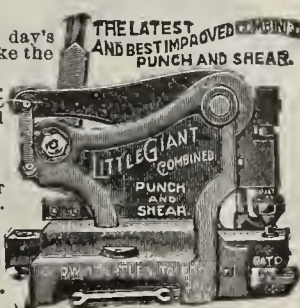 day's
ke the
THE LATEST
AND BEST IMPROVED COMBINED
PUNCH AND SHEAR.
LITTLE GIANT
COMBINED
PUNCH
AND
SHEAR
PAT'D